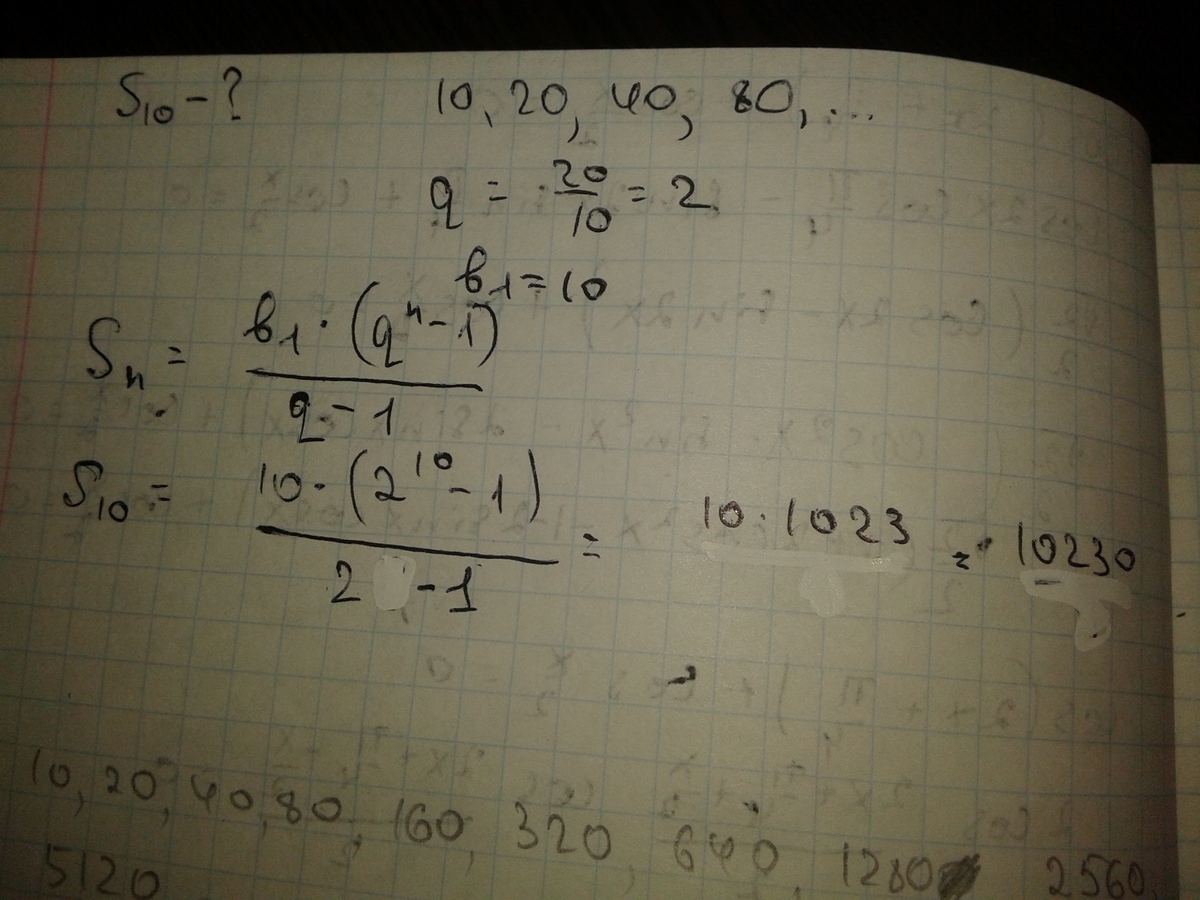 S₁₀ - ? 10, 20, 40, 80, ...
q = 20/10 = 2
b₁ = 10
Sₙ = b₁ · (qⁿ - 1) / q - 1
S₁₀ = 10 · (2¹⁰ - 1) / 2 - 1 = 10 · 1023 = 10230
10, 20, 40, 80, 160, 320, 640, 1280 2560,
5120